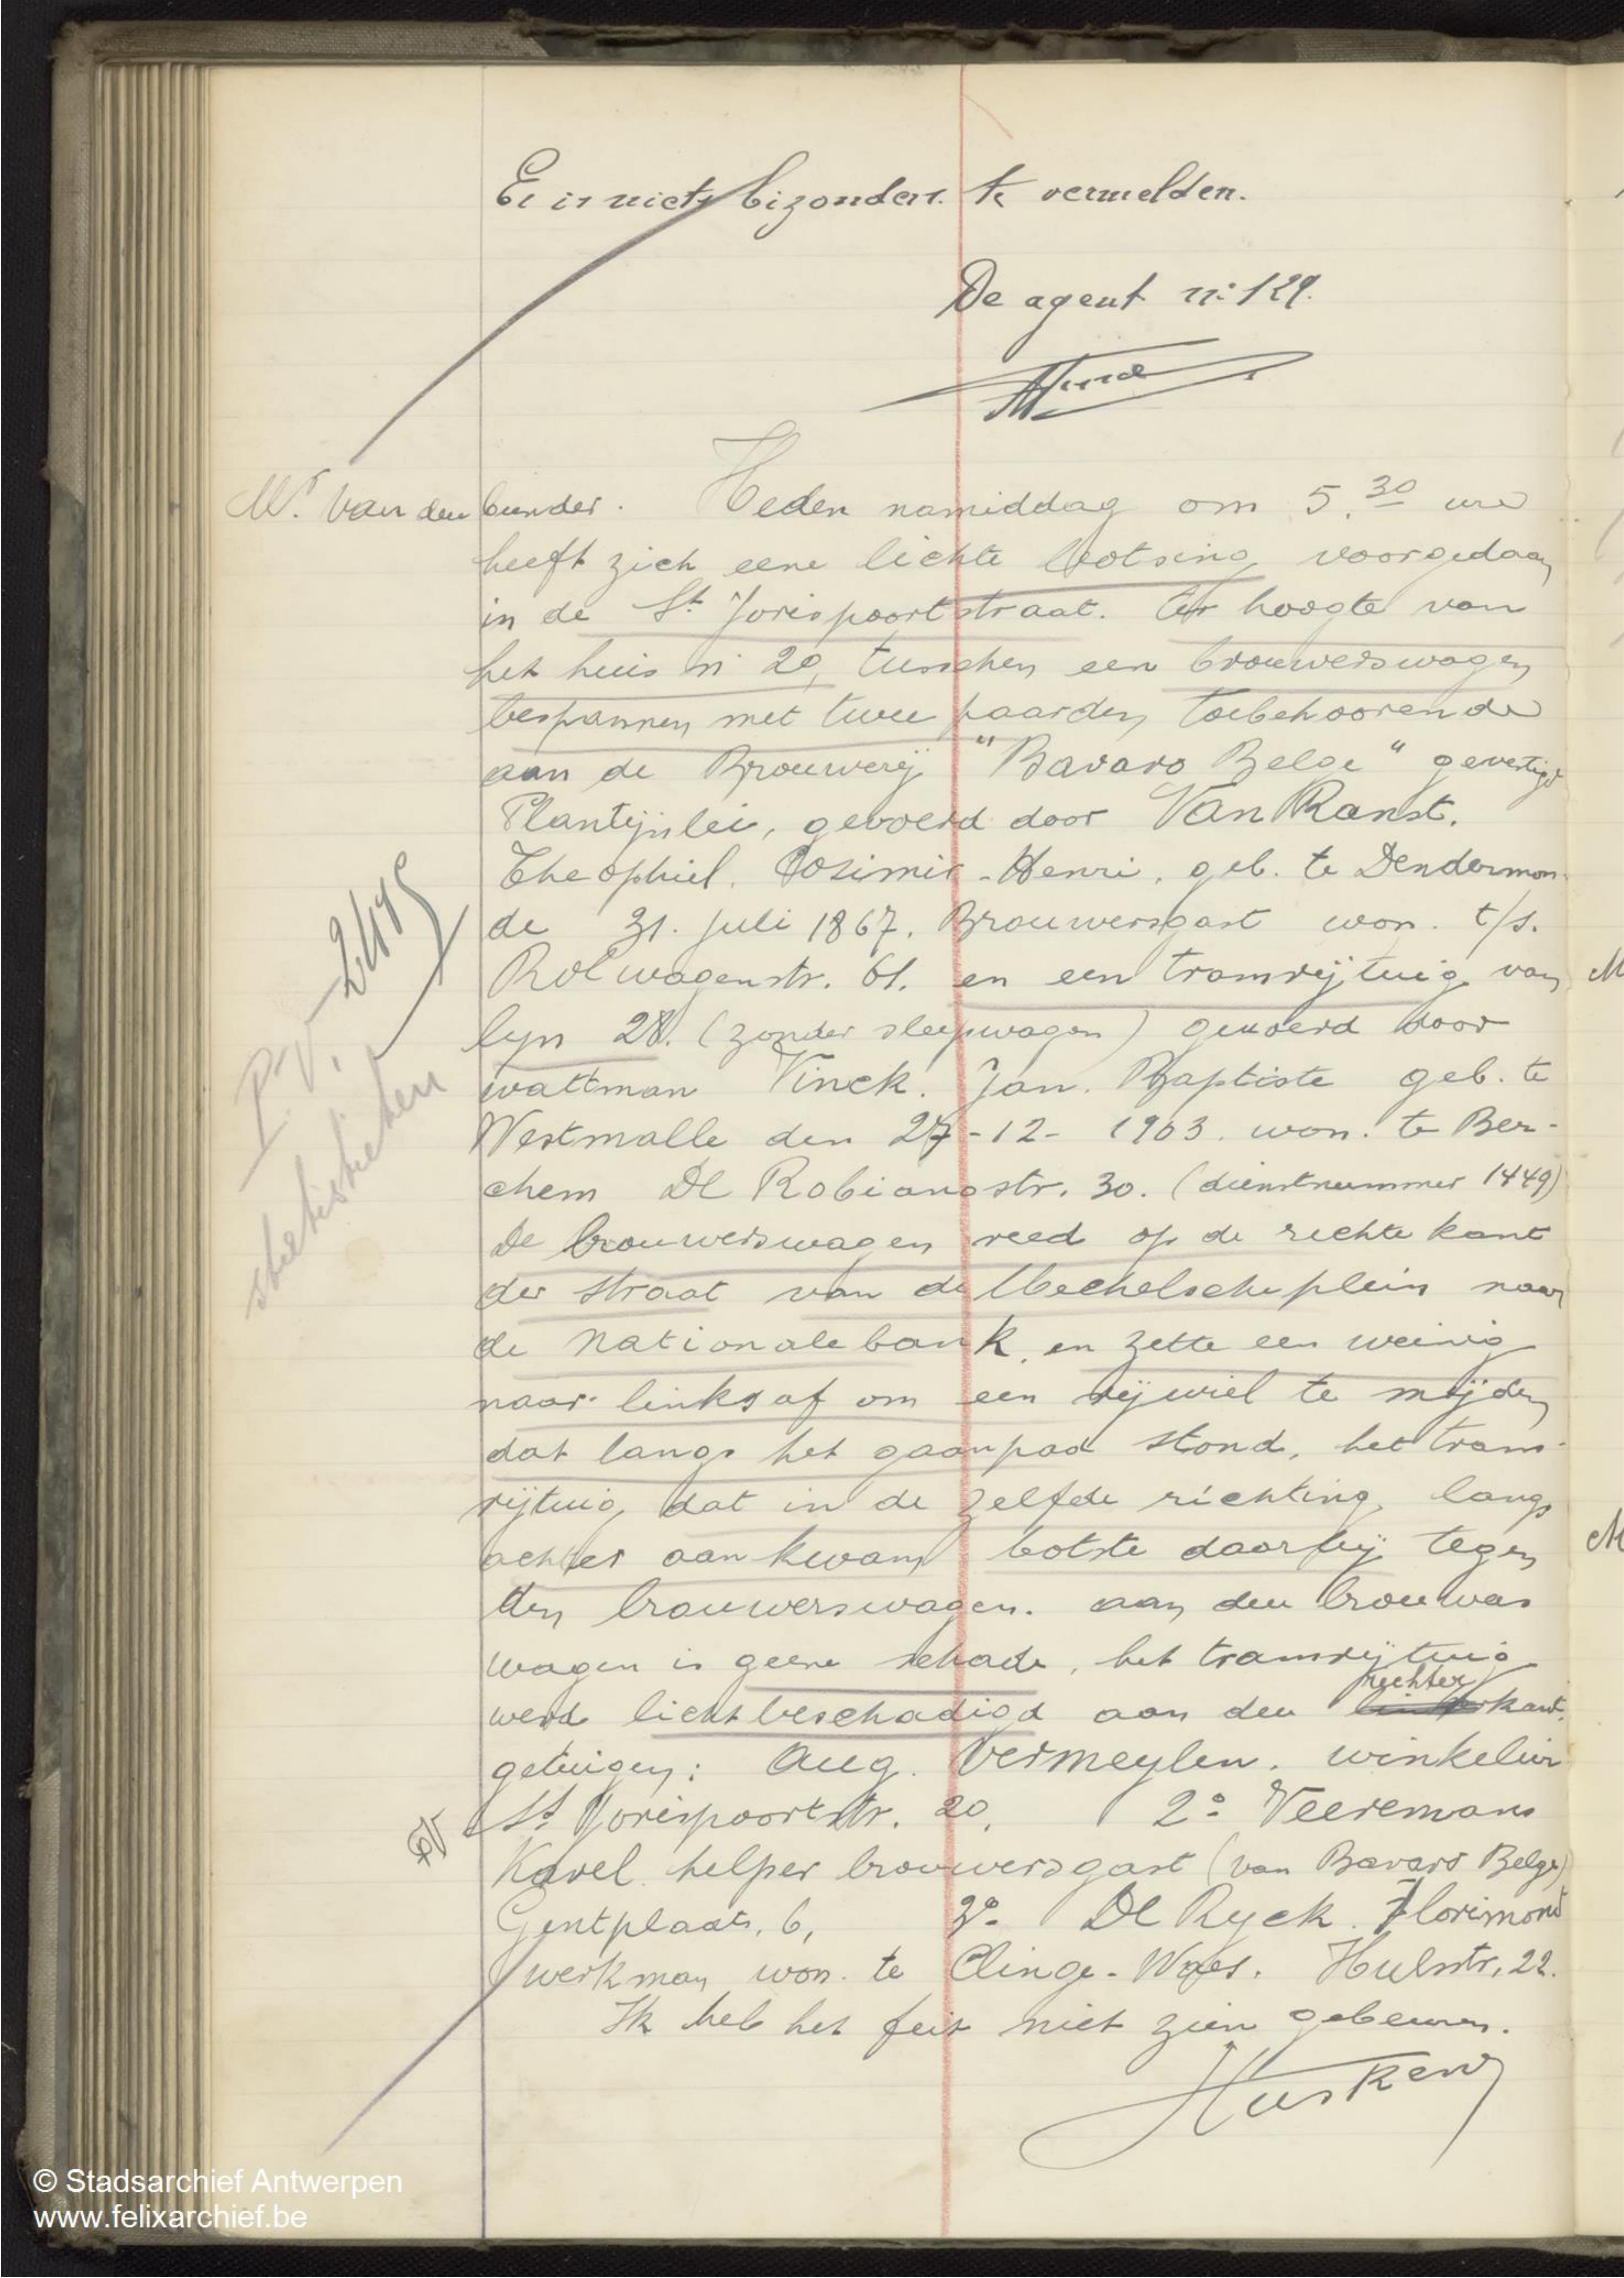 Er is niets bizonders te vermelden.
De agent n: 129.
Mr. Van den bunder. Heden namiddag om 5.30 ure
heeft zich eene lichte botsing voorgedaan
in de St Jorispoortstraat. ter hoogte van
het huis n: 20, tusschen een brouwerswagen
bespannen met twee paarden toebehoorende
aan de Brouwerij "Bavaro Belge" gevestigd
Plantijnlei, gevoerd door Van Ranst.
Theophiel. Cosimir-Henri, geb. te Dendermon-
de 31. juli 1867. Brouwersgast won. t/s.
Rolwagenstr. 61. en een tramrijtuig van
lyn 28. (zonder sleepwagen) gevoerd door
wattman Vinck. Jan. Baptiste geb. te
Westmalle den 27-12-1903. won. te Ber-
chem De Robianostr. 30. (dienstnummer 1449)
De brouwerswagen reed op de rechte kant
der straat van de Mechelscheplein naar
de Nationale bank, en zette een weinig
naar links af om een rijwiel te mijden
dat langs het gaanpad stond, het tram-
rijtuig dat in de zelfde richting langs
achter aan kwam botste daarbij tegen
den brouwerswagen. aan den brouwers
wagen is geene schade, het tramrijtuig
werd licht beschadigd aan den rechter kant.
getuigen: Aug. Vermeylen. winkelier
St Jorispoortstr. 20. 2° Veeremans
Karel helper brouwersgast (van Bavaro Belge)
Gentplaats, 6, 3° De Ryck. Florimond
werkman won. te Clinge-Waes. Hulststr, 22.
Ik heb het feit niet zien gebeuren.
Huskens
P.V. 2475
statistieken
M
M
© Stadsarchief Antwerpen
www.felixarchief.be